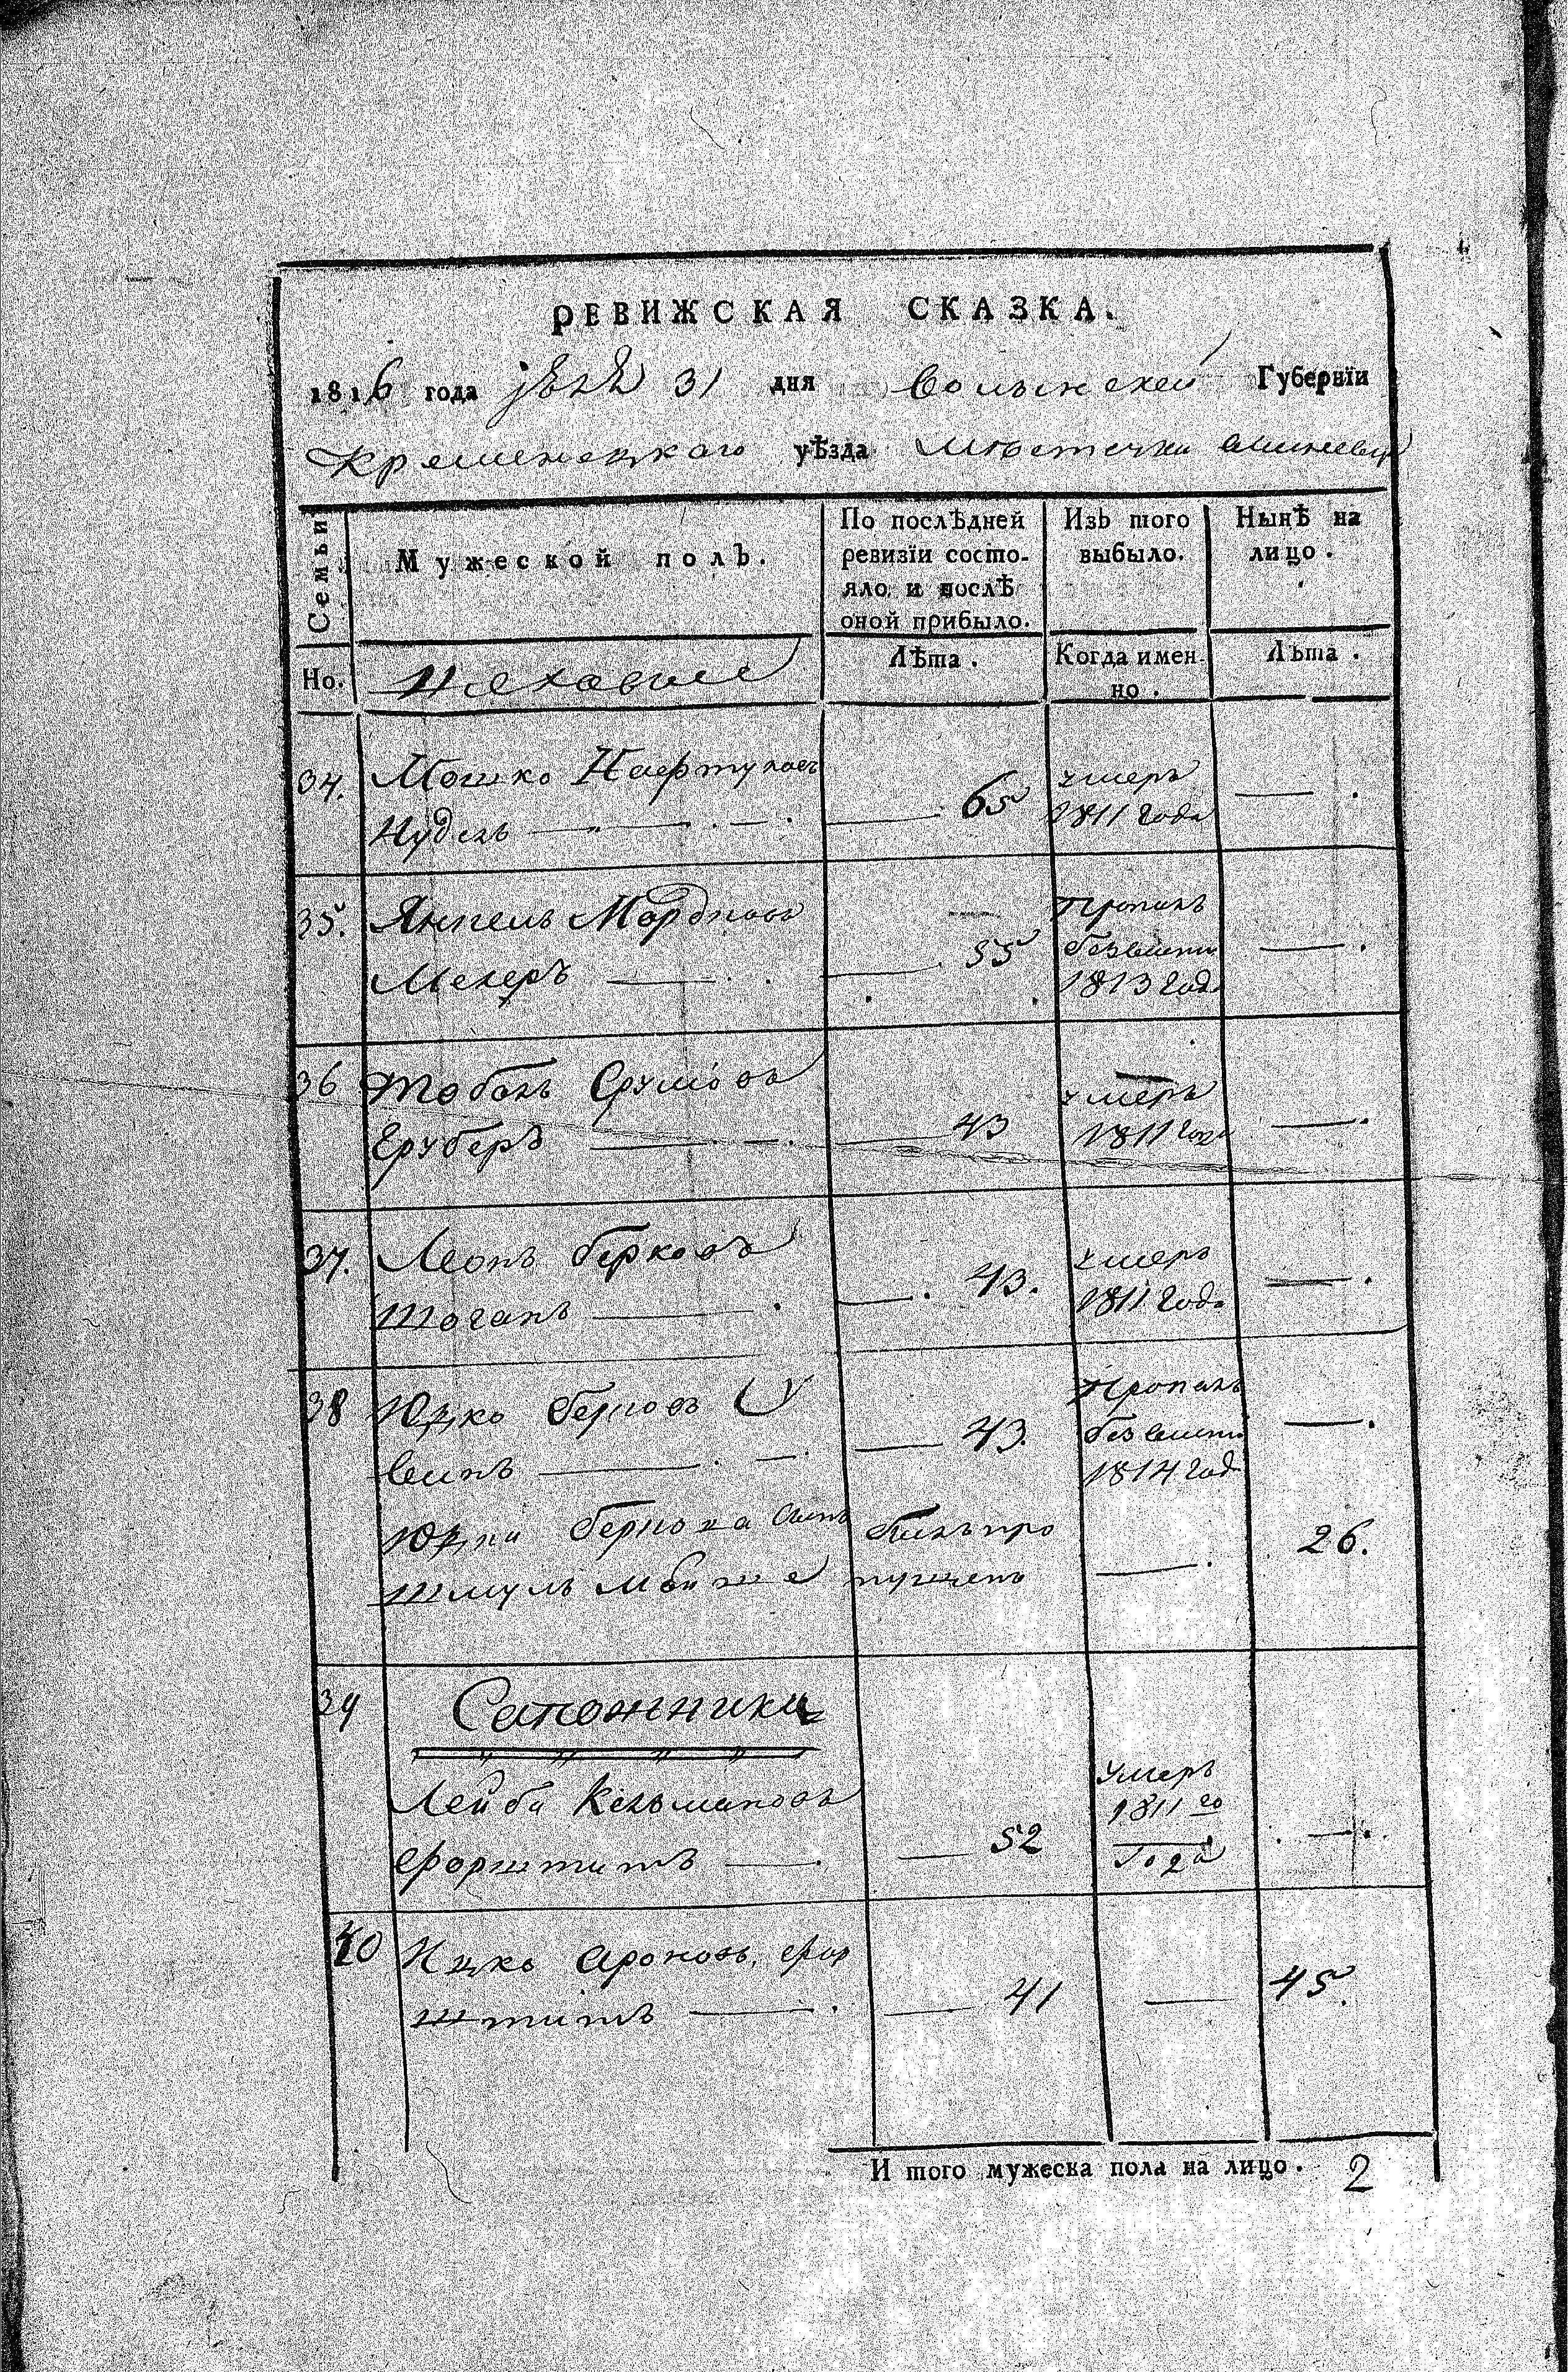 РЕВИЖСКАЯ СКАЗКА.
1816 года 31 дня Волынской Губернїи
Кременецкаго уѣзда Мѣстечка
Семьи
Мужеской полъ.
По послѣдней ревизїи состо-
яло и послѣ оной прибыло.
Изъ того выбыло.
Нынѣ на лицо.
Но.
Лѣта.
Когда имен-
но.
Лѣта.
34. Мошко
Нудель 65 умеръ
1811 года
35. Янкель Мордковъ
Мелеръ 55 Пропалъ
безвести
1813 год
36 Сруліовъ
43 умеръ
1811 года
37. Берковъ
43. умеръ
1811 года
38 Юдко Берковъ
43. Пропалъ
безвести
1814 год
Юдки Берка сынъ былъ про
Шмуль пущенъ 26.
39 Сапожники
Лейба Кельмановъ
Форштитъ 52 Умеръ
1811 го
Года
40 Ицко Ароновъ Фор
штитъ 41 45.
И того мужеска пола на лицо. 2